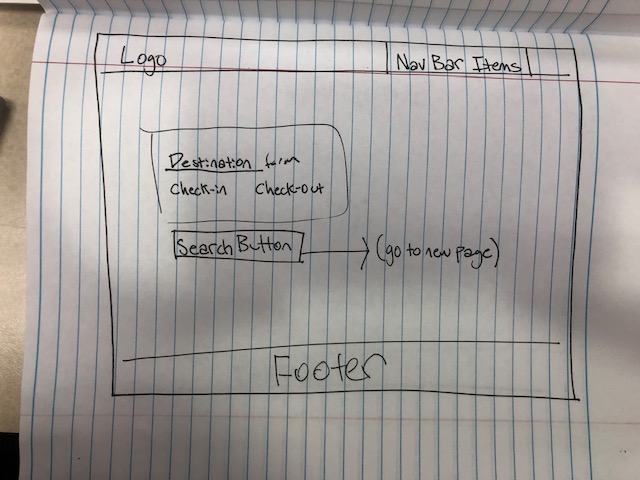 Logo
Nav Bar Items
Destination form
check-in check-out
Search Button
(go to new page)
Footer